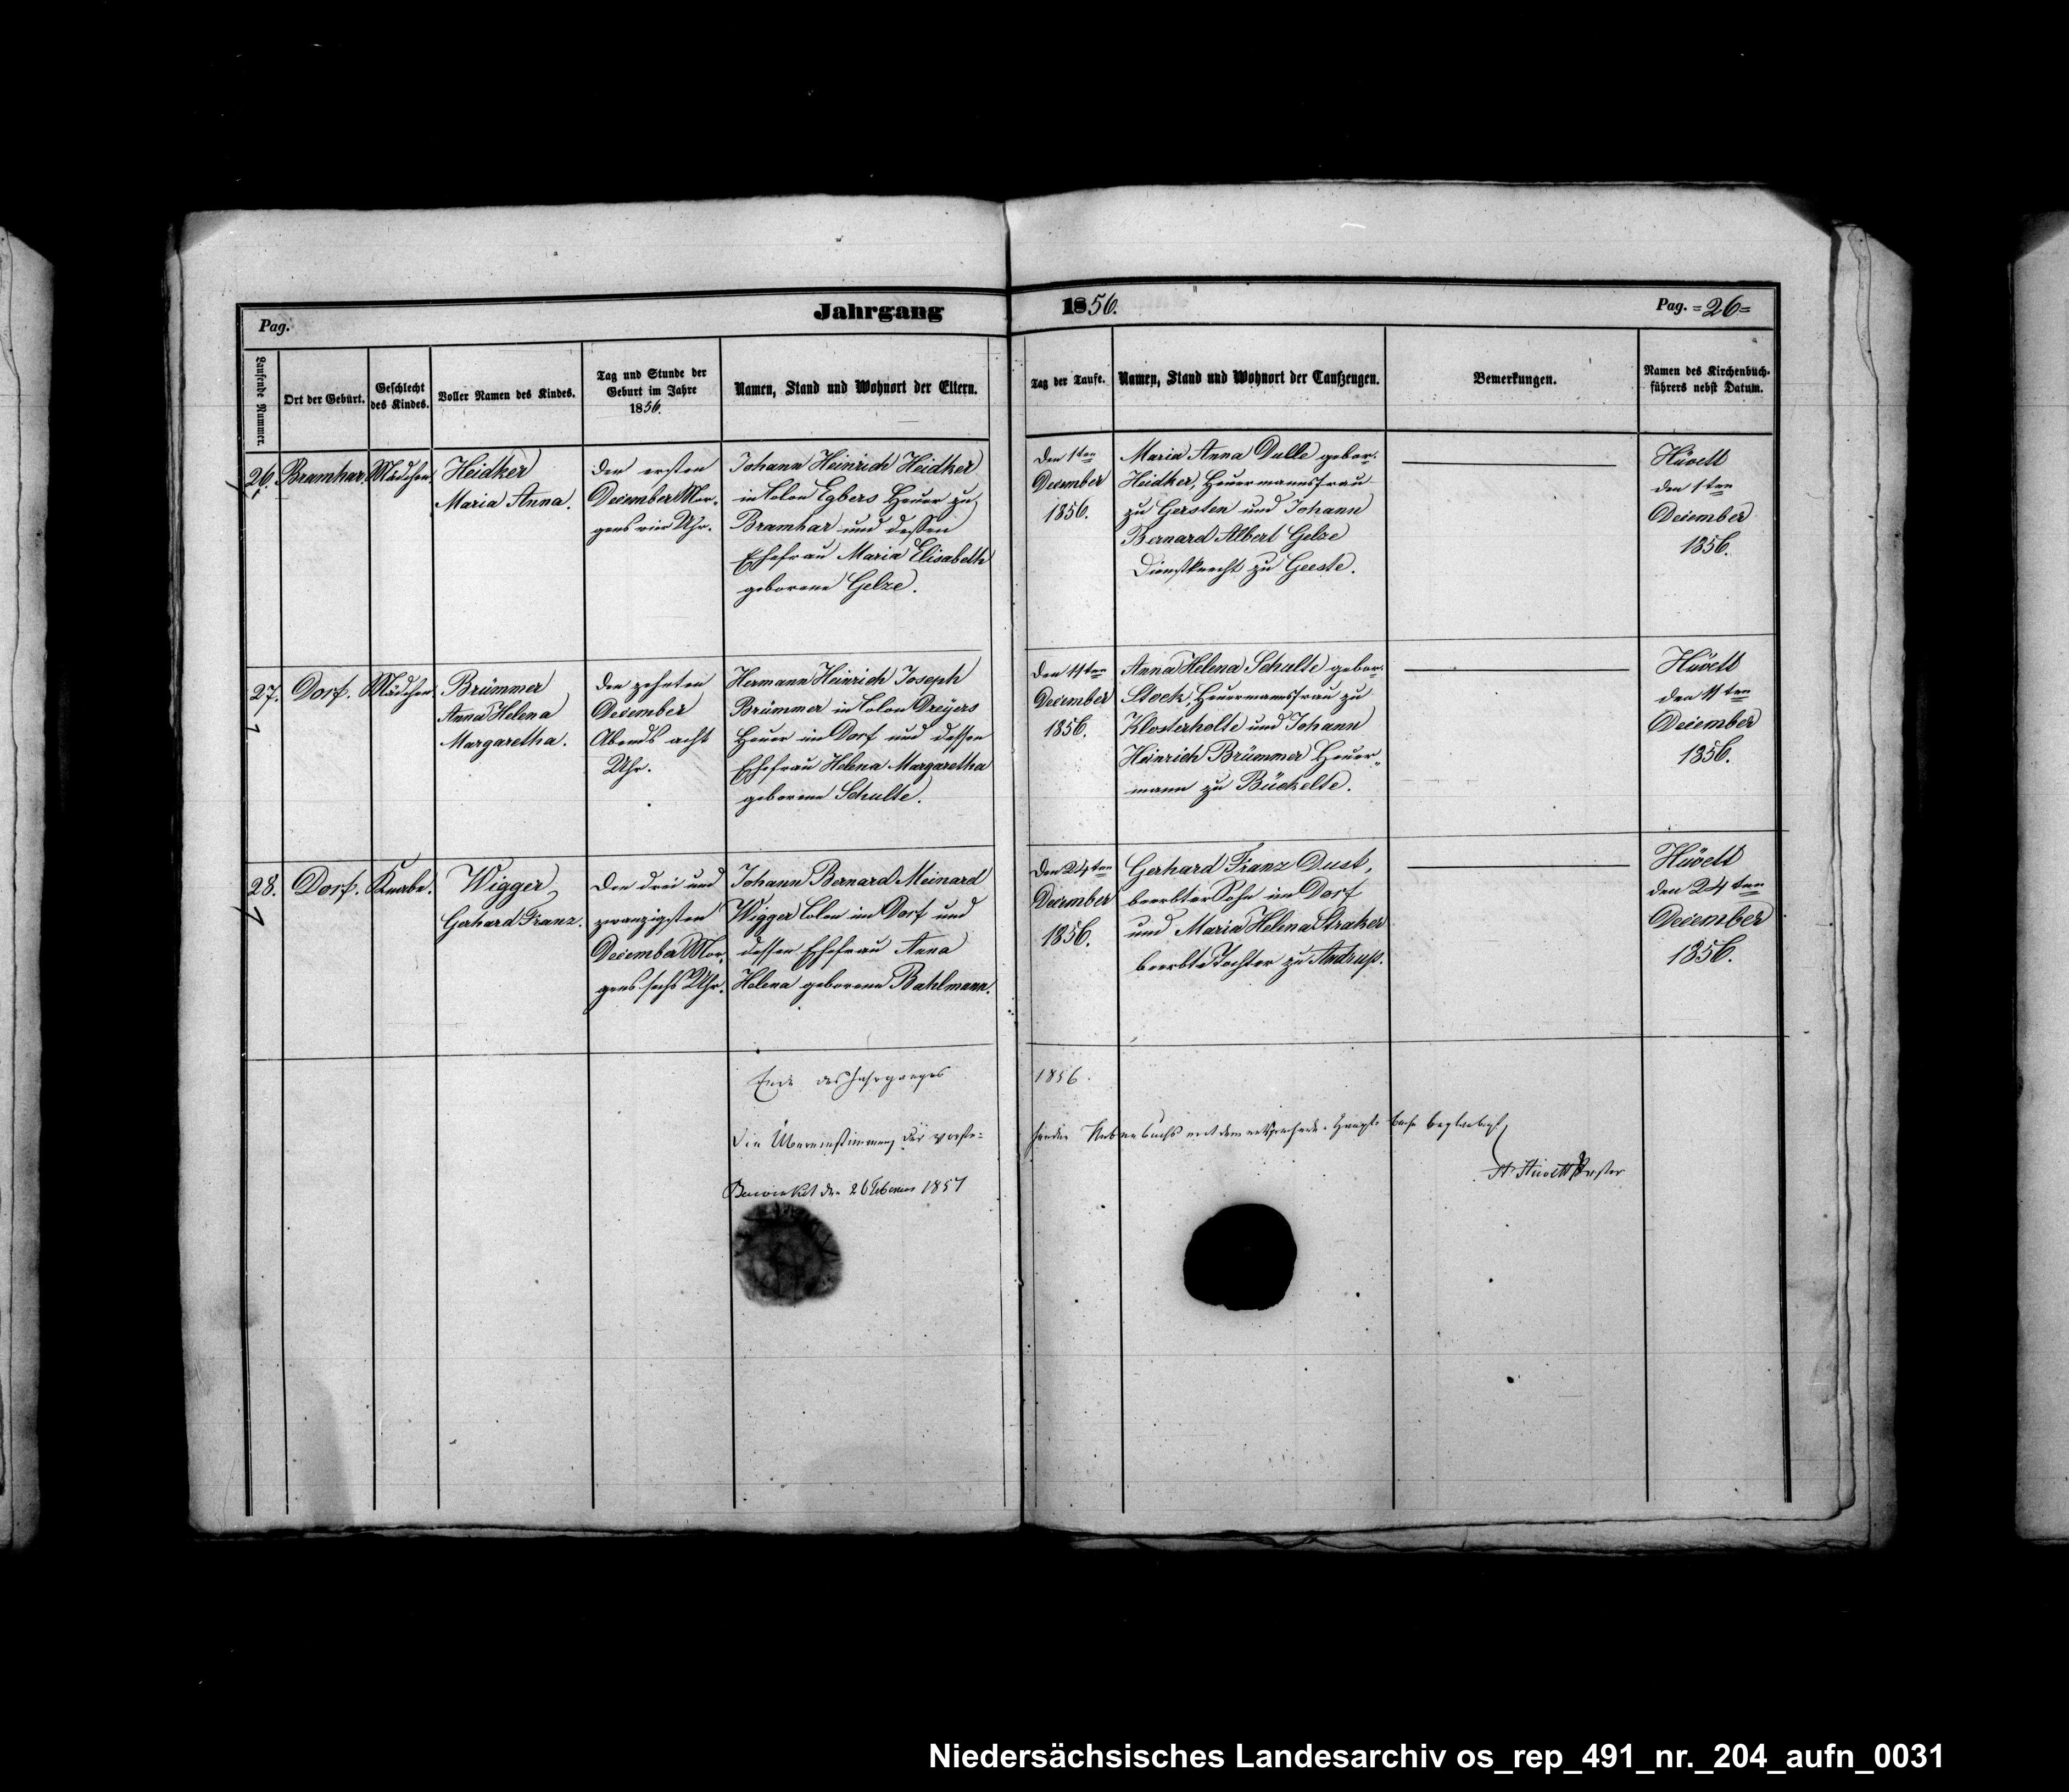 Pag.
Jahrgang 1856.
Pag. =26=
Laufende Nummer.
Ort der Geburt.
Geschlecht
des Kindes.
Voller Namen des Kindes.
Tag und Stunde der
Geburt im Jahre
1856.
Namen, Stand und Wohnort der Eltern.
Tag der Taufe.
Namen, Stand und Wohnort der Taufzeugen.
Bemerkungen.
Namen des Kirchenbuch-
führers nebst Datum.
26.
Bramhar.
Mädchen.
Heidker
Maria Anna.
Den ersten
December Mor-
gens vier Uhr.
Johann Heinrich Heidker
in Colon Egbers Heuer zu
Bramhar und dessen
Ehefrau Maria Elisabeth
geborene Gelze.
Den 1ten
December
1856.
Maria Anna Dulle gebor.
Heidker, Heuermannsfrau
zu Gersten und Johann
Bernard Albert Gelze
Dienstknecht zu Geeste.
Hüvett
den 1ten
December
1856.
27.
Dorf.
Mädchen.
Brümmer
Anna Helena
Margaretha.
Den zehnten
December
Abends acht
Uhr.
Hermann Heinrich Joseph
Brümmer in Colon Dreijers
Heuer im Dorf und dessen
Ehefrau Helena Margaretha
geborene Schulte.
Den 11ten
December
1856.
Anna Helena Schulte gebor.
Stock, Heuermannsfrau zu
Klosterholte und Johann
Heinrich Brümmer Heuer-
mann zu Bückelte.
Hüvett
den 11ten
December
1856.
28.
Dorf.
Knabe.
Wigger
Gerhard Franz.
Den drei und
zwanzigsten
December Mor-
gens sechs Uhr.
Johann Bernard Meinard
Wigger Colon im Dorf und
dessen Ehefrau Anna
Helena geborene Bahlmann.
Den 24ten
December
1856.
Gerhard Franz Dust,
beerbter Sohn im Dorf
und Maria Helena Straker
beerbte Tochter zu Andrup.
Hüvett
den 24ten
December
1856.
Ende des Jahrganges 1856.
Die Übereinstimmung der vorste-
henden Nebenbuchs mit dem entsprechenden Haupt-buche beglaubigt,
Hüvett Pastor
den 26 1857
Niedersächsisches Landesarchiv os_rep_491_nr._204_aufn_0031